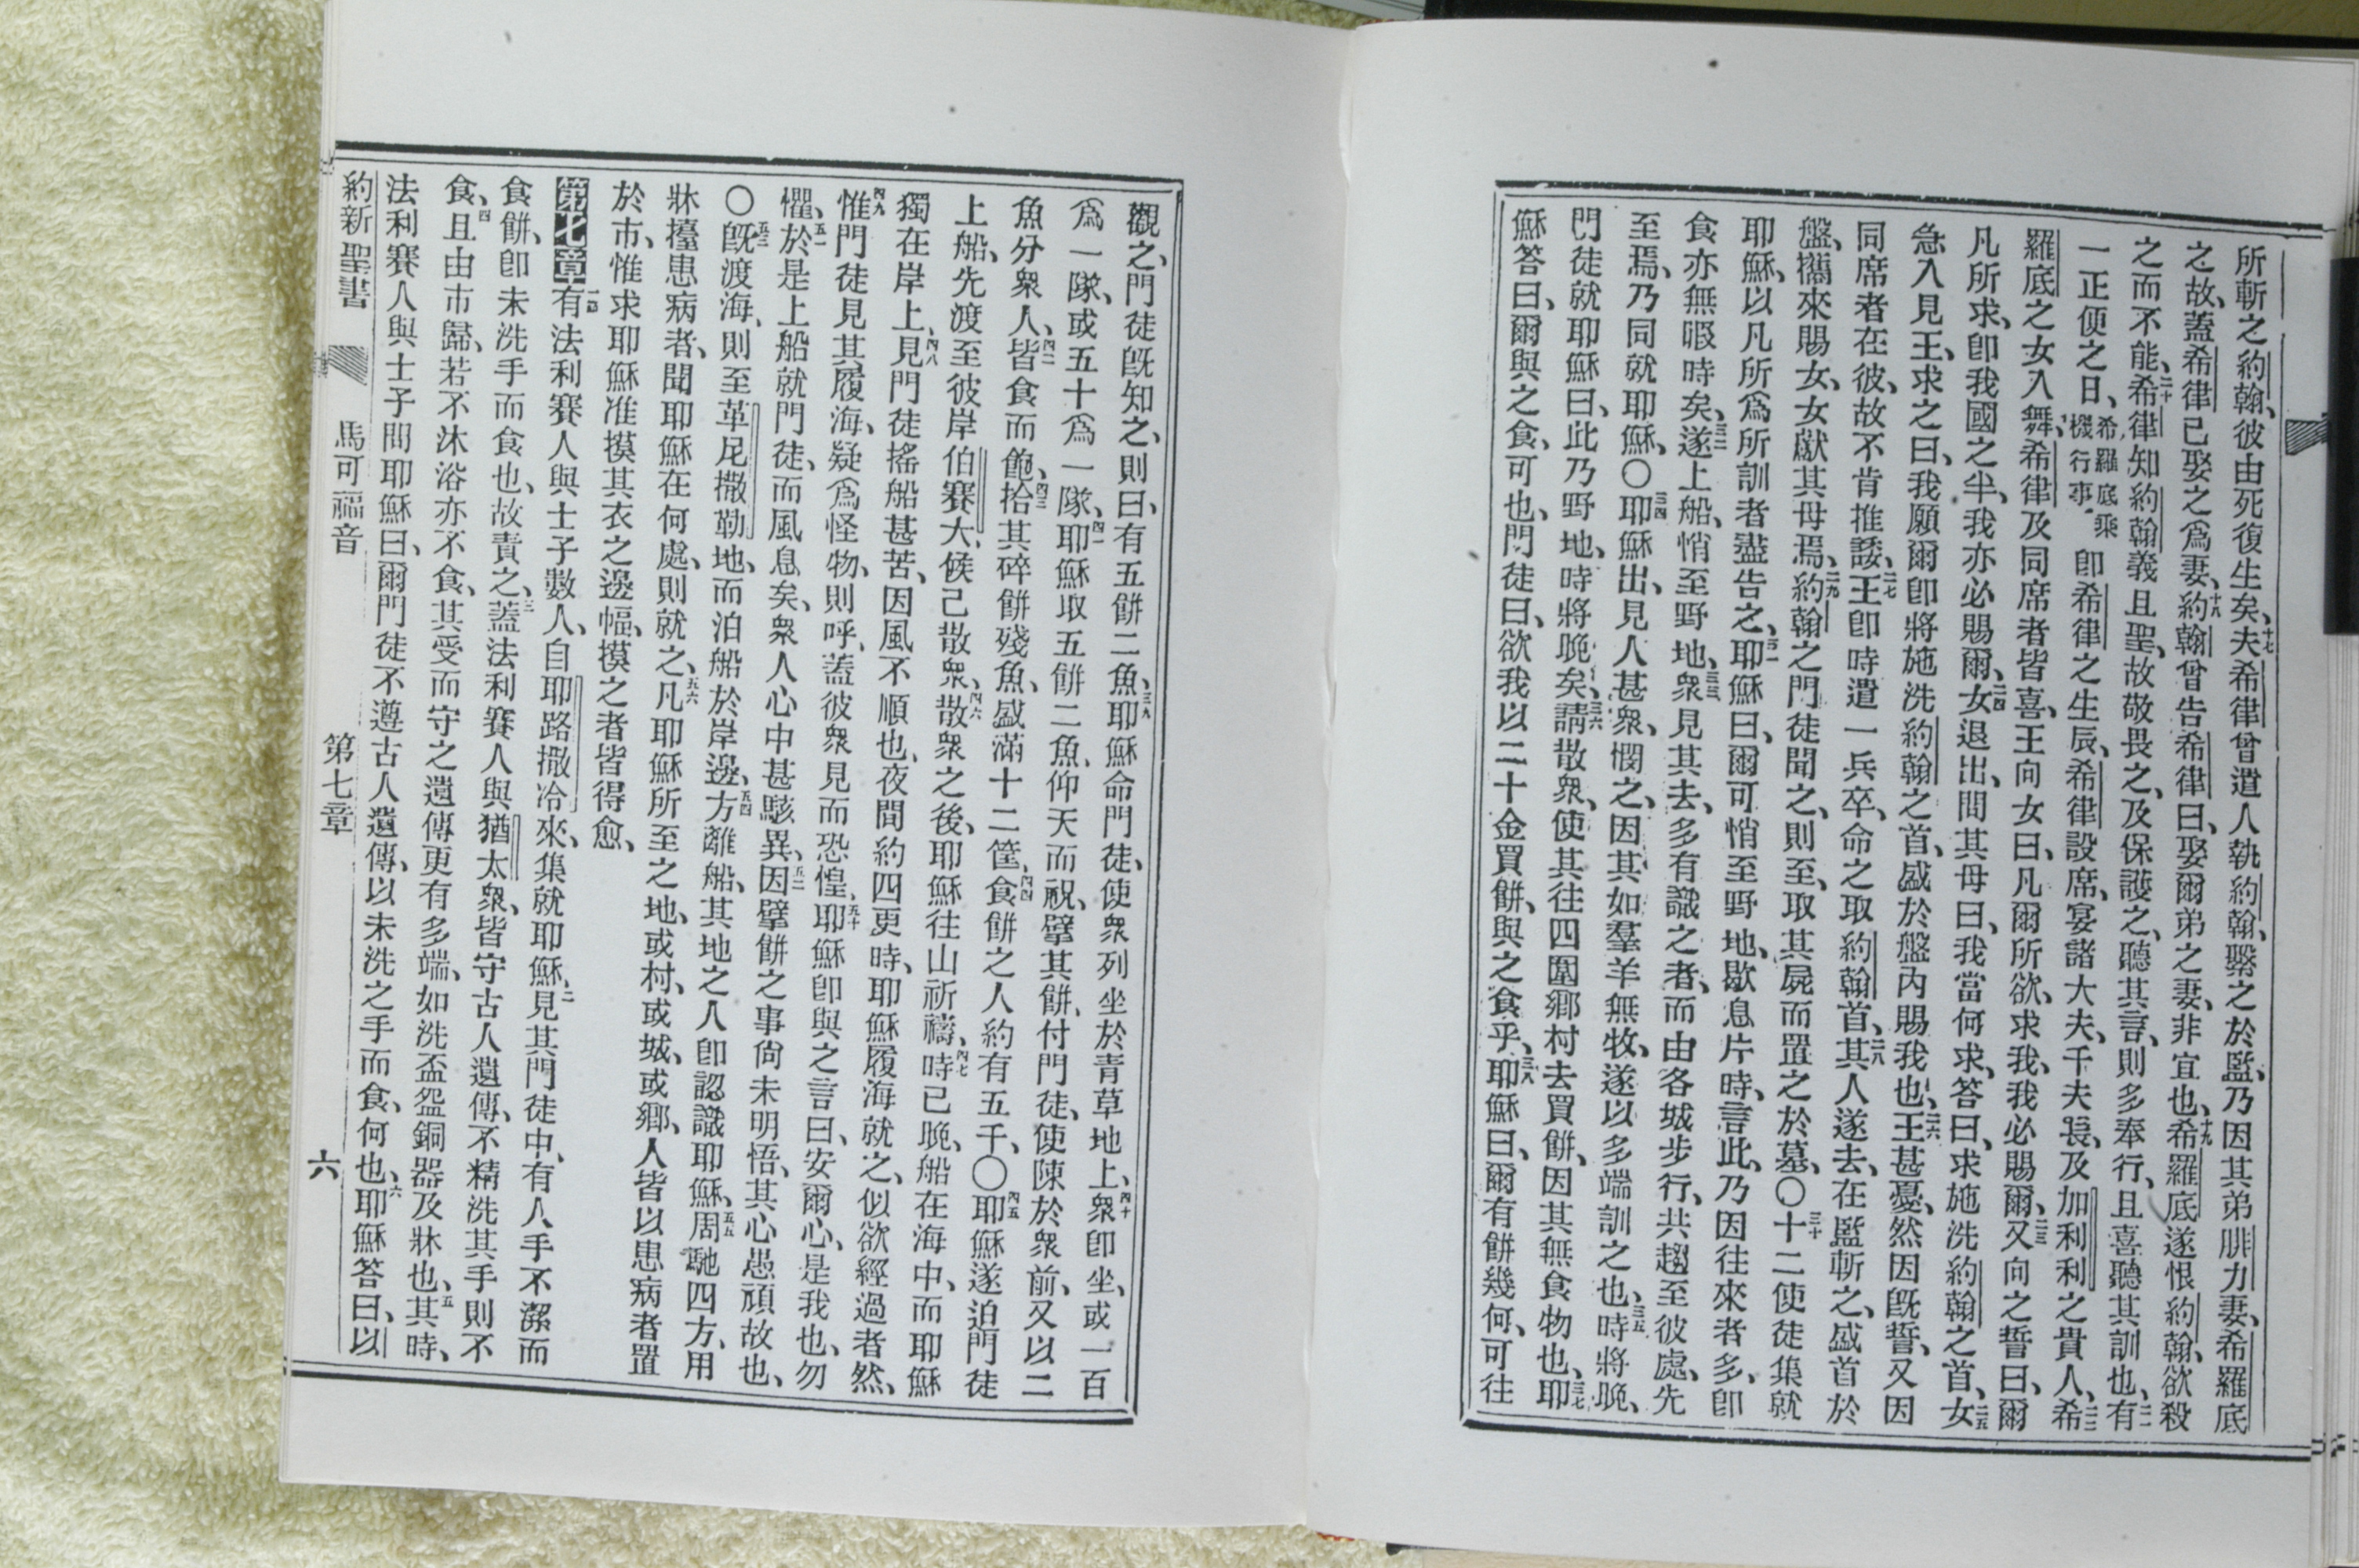 所斬之約翰、彼由死復生矣、十七夫希律曾遣人執約翰、繫之於監、乃因其弟腓力妻、希羅底
之故、蓋希律已娶之爲妻、十八約翰曾告希律曰、娶爾弟之妻、非宜也、十九希羅底遂恨約翰、欲殺
之而不能、二十希律知約翰義且聖、故敬畏之、及保護之、聽其言、則多奉行、且喜聽其訓也、二一有
一正便之日、希羅底乘機行事、即希律之生辰、希律設席、宴諸大夫、千夫長、及加利利之貴人、二二希
羅底之女入舞、希律及同席者皆喜、王向女曰、凡爾所欲、求我、我必賜爾、二三又向之誓曰、爾
凡所求、卽我國之半、我亦必賜爾、二四女退出、問其母曰、我當何求、答曰、求施洗約翰之首、二五女
急入見王、求之曰、我願爾卽將施洗約翰之首、盛於盤內賜我也、二六王甚憂、然因旣誓、又因
同席者在彼、故不肯推諉、二七王卽時遣一兵卒、命之取約翰首、二八其人遂去、在監斬之、盛首於
盤、攜來賜女、女獻其母焉、二九約翰之門徒聞之、則至、取其屍而置之於墓、〇三十十二使徒集就
耶穌、以凡所爲所訓者盡告之、三一耶穌曰、爾可悄至野地、歇息片時、言此、乃因往來者多、卽
食亦無暇時矣、三二遂上船、悄至野地、三三衆見其去、多有識之者、而由各城步行、共趨至彼處、先
至焉、乃同就耶穌、〇三四耶穌出、見人甚衆、憫之、因其如羣羊無牧、遂以多端訓之也、三五時將晚、
門徒就耶穌曰、此乃野地、時將晚矣、三六請散衆、使其往四圍鄉村去買餅、因其無食物也、三七耶
穌答曰、爾與之食、可也、門徒曰、欲我以二十金買餅、與之食乎、三八耶穌曰、爾有餅幾何、可往
觀之、門徒旣知之、則曰、有五餅二魚、三九耶穌命門徒、使衆列坐於青草地上、四十衆卽坐、或一百
爲一隊、或五十爲一隊、四一耶穌取五餅二魚、仰天而祝、擘其餅、付門徒、使陳於衆前、又以二
魚分衆人、四二皆食而飽、四三拾其碎餅殘魚、盛滿十二筐、四四食餅之人約有五千、〇四五耶穌遂迫門徒
上船、先渡至彼岸伯賽大、候己散衆、四六散衆之後、耶穌往山祈禱、四七時已晚、船在海中、而耶穌
獨在岸上、四八見門徒搖船甚苦、因風不順也、夜間約四更時、耶穌履海就之、似欲經過者然、
四九惟門徒見其履海、疑爲怪物、則呼、蓋彼衆見而恐惶、五十耶穌卽與之言曰、安爾心、是我也、勿
懼、五一於是上船就門徒、而風息矣、衆人心中甚駭異、五二因擘餅之事尙未明悟、其心愚頑故也、
〇五三旣渡海、則至革尼撒勒地、而泊船於岸邊、五四方離船、其地之人卽認識耶穌、五五周馳四方、用
牀擡患病者、聞耶穌在何處、則就之、五六凡耶穌所至之地、或村、或城、或鄉、人皆以患病者置
於市、惟求耶穌准摸其衣之邊幅、摸之者皆得愈、
第七章 一節有法利賽人與士子數人、自耶路撒冷來、集就耶穌、二見其門徒中、有人手不潔而
食餅、卽未洗手而食也、故責之、三蓋法利賽人與猶太衆、皆守古人遺傳、不精洗其手則不
食、四且由市歸、若不沐浴亦不食、其受而守之遺傳更有多端、如洗盃盌銅器及牀也、五其時、
法利賽人與士子問耶穌曰、爾門徒不遵古人遺傳、以未洗之手而食、何也、六耶穌答曰、以
約新聖書 馬可福音 第七章 六